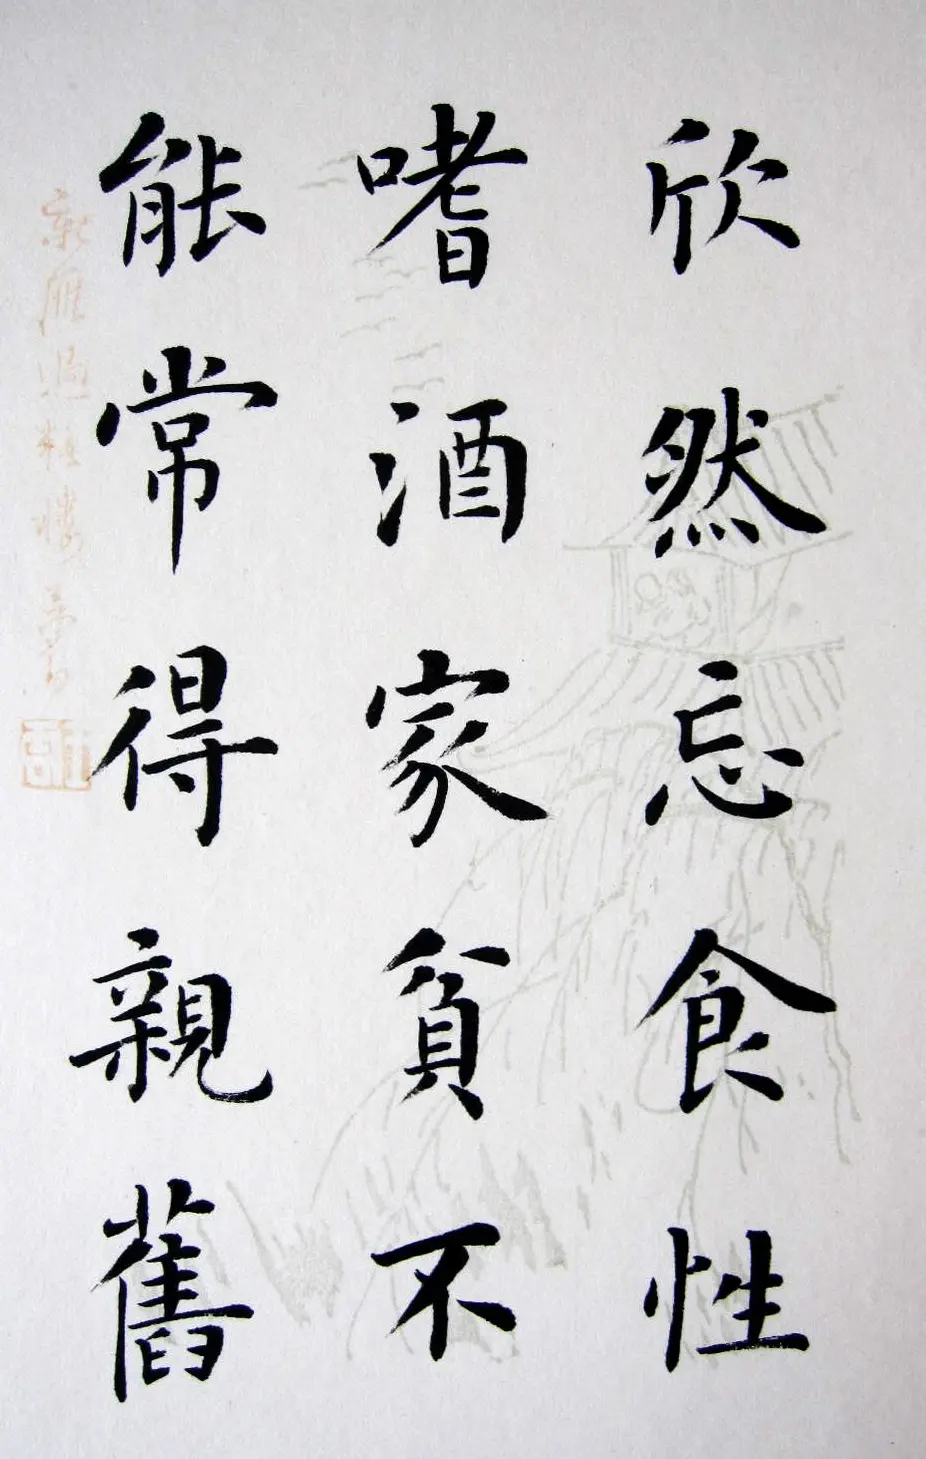 欣然忘食性
嗜酒家貧不
能常得親舊